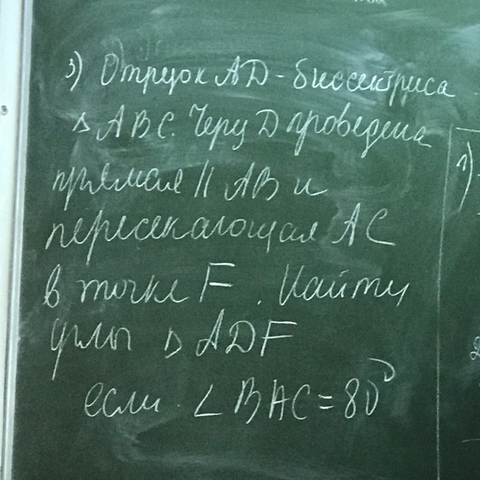 3) Отрезок AD - биссектриса
△ ABC. Через D проведена
прямая || AB и
пересекающая AC
в точке F. Найти
углы △ ADF
если ∠BAC = 80°
1)